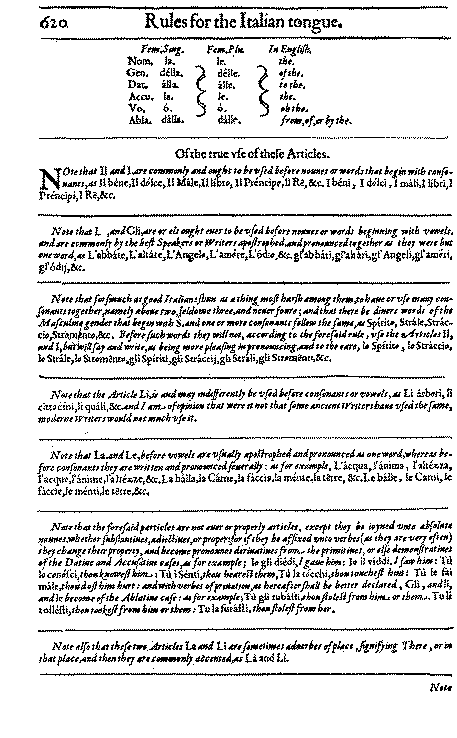 620. Rules for the Italian tongue.
Fem. Sing. Fem. Plu. In English.
Nom. la. le. the.
Gen. délla. délle. of the.
Dat. álla. álle. to the.
Accu. la. le. the.
Vo. ó. ó. oh the.
Abla. dálla. dálle. from, of, or by the.
Of the true vse of these Articles.
NOte that Il and I, are commonly and ought to be vsed before nounes or words that begin with conso-
nants, as Il béne, Il dólce, Il Mále, Il líbro, Il Príncipe, Il Rè, &c. I béni, I dólci, I máli, I líbri, I
Príncipi, I Rè, &c.
Note that L, and Gli, are or els ought to be vsed before nounes or words beginning with vowels,
and are commonly by the best Speakers or Writers apostrophed, and pronounced together as they were but
one word, as L'abbáte, L'altáre, L'Angelo, L'amóre, L'ódio, &c. gl'abbáti, gl'altári, gl'Angeli, gl'amóri,
gl'ódij, &c.
Note that forsomuch as good Italians shun as a thing most harsh among them, to haue or vse many con-
sonants together, namely aboue two, seldome three, and neuer foure; and that there be diuers words of the
Masculine gender that begin with S, and one or more consonants follow the same, as Spírito, Strále, Strác-
cio, Stroménto, &c. Before such words they will not, according to the foresaid rule, vse the Articles Il,
and I, but will say and write, as being more pleasing in pronouncing, and to the eare, lo Spírito, lo Stráccio,
lo Strále, lo Stroménto, gli Spíriti, gli Stráccij, gli Stráli, gli Stroménti, &c.
Note that the Article Li, is and may indifferently be vsed before consonants or vowels, as Li árbori, li
cittadíni, li quáli, &c. and I am of opinion that were it not that some ancient Writers haue vsed the same,
moderne Writers would not much vse it.
Note that La, and Le, before vowels are vsually apostrophed and pronounced as one word, whereas be-
fore consonants they are written and pronounced seuerally: as for example, L'ácqua, l'ánima, l'altézza,
l'ácque, l'ánime, l'altézze, &c. La bálla, la Cárne, la fáccia, la ménte, la térra, &c. Le bálle, le Cárni, le
fáccie, le ménti, le térre, &c.
Note that the foresaid particles are not euer or properly articles, except they be ioyned vnto absolute
nounes, whether substantiues, adiectiues, or proper; for if they be affixed vnto verbes (as they are very often)
they change their property, and become pronounes deriuatiues from the primitiues, or else demonstratiues
of the Datiue and Accusatiue cases, as for example; Io gli diédi, I gaue him: Io il víddi, I saw him: Tu
lo conósci, thou knowest him: Tu i sénti, thou hearest them, Tu la tócchi, thou touchest her: Tu le fai
mále, thou dost him hurt: and with verbes of priuation, as hereafter shall be better declared, Gli, and li,
and le become of the Ablatiue case: as for example; Tú gli rubásti, thou stolest from him or them. Tu li
tollésti, thou tookest from him or them: Tu la furásti, thou stolest from her.
Note also that these two Articles La and Li are sometimes aduerbes of place, signifying There, or in
that place, and then they are commonly accented, as Là and Lì.
Note